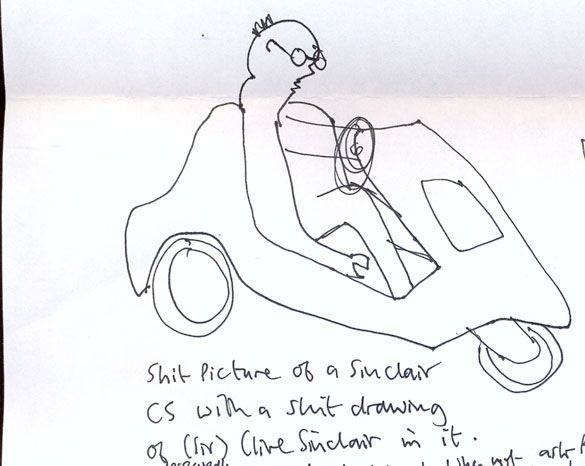 Shit Picture of a Sinclair
C5 with a shit drawing
of (Sir) Clive Sinclair in it.
not ask